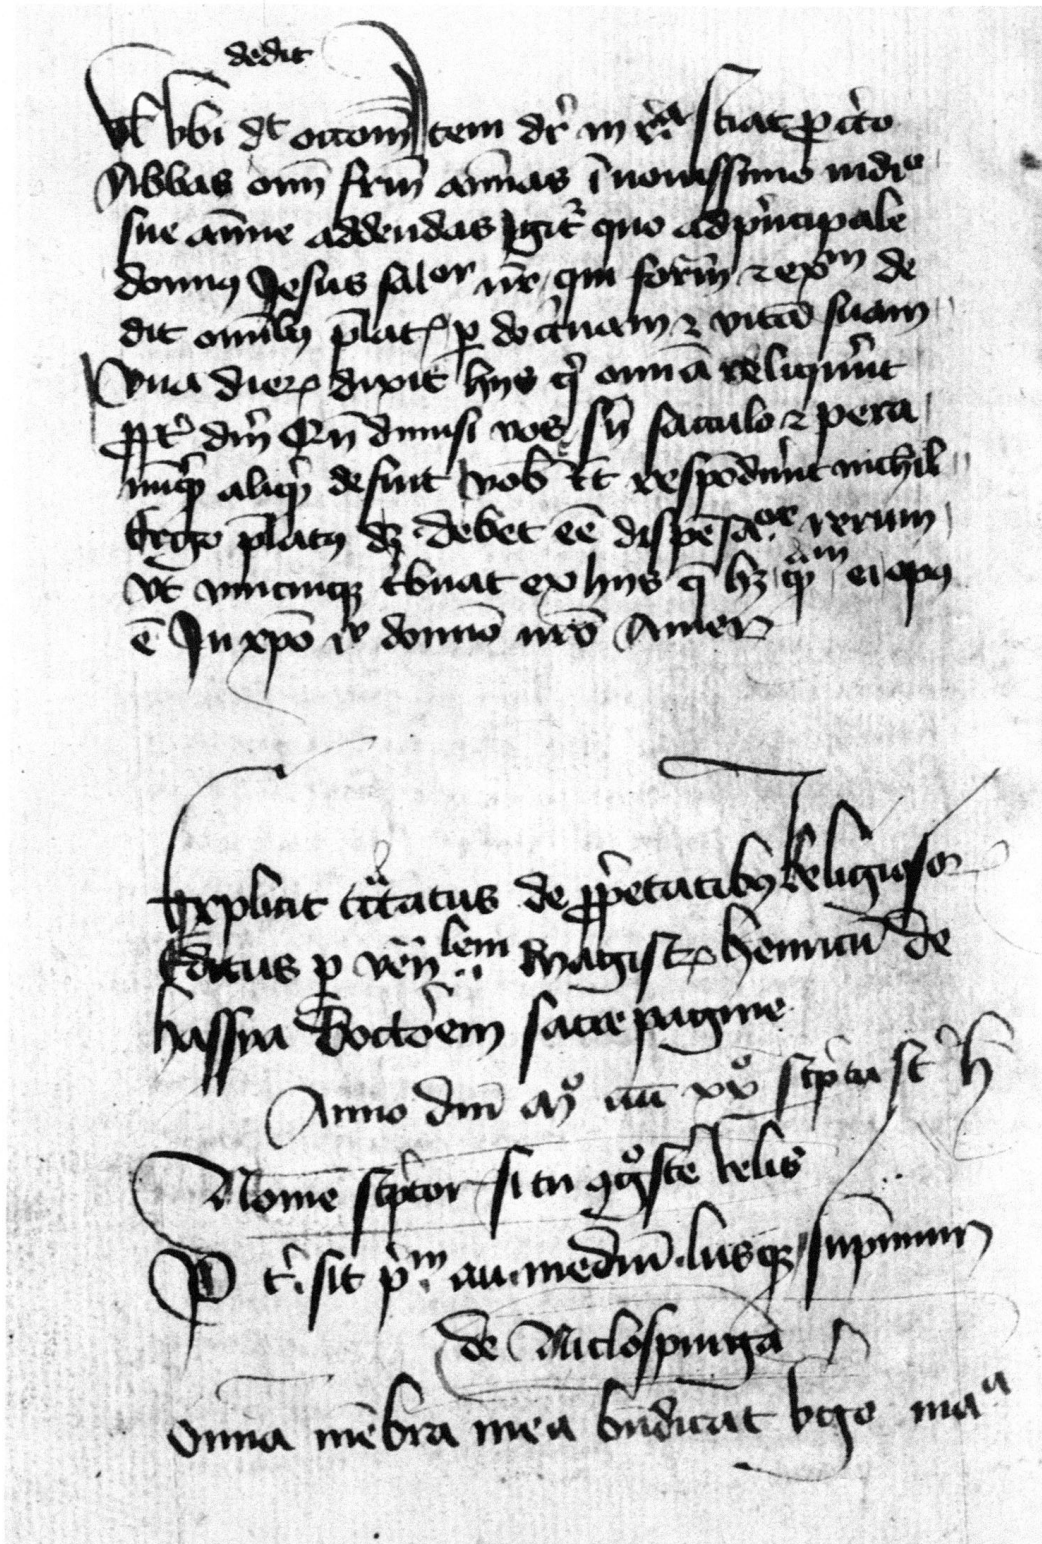 dedit
vbi dt occoem Item dr in sciat p cto
Abbas oim frm animas i nouissimo
sue anime addendas Igitr quo ad pncipale
domus Jesus salor nr qui form et exm de
dit omibus plat per doctnam et vitam suam
Una dier dixit hijs q omia reliqrnt
ppt dm Qn dimisi vos sn sacculo et pera
nuqd aliqd defuit vob respondrnt nichil
Ergo platus dz debet ee dispesaor rerum
Ut unicuique tbuat ex hijs q hz qm ei opus
e In xpo domio nro Amen
Explicit tractatus de pprietatibus Religiosor
Editus p venlem Magistr Henricu de
hassya Doctorem sacre pagine
Anno dni Mo xxo scpta st h
Nome scptor si tu cgoscere velis
P t sit pm au mediu lusque supmum
de Niclospurga
Omia mebra mea bndicat vgo maa